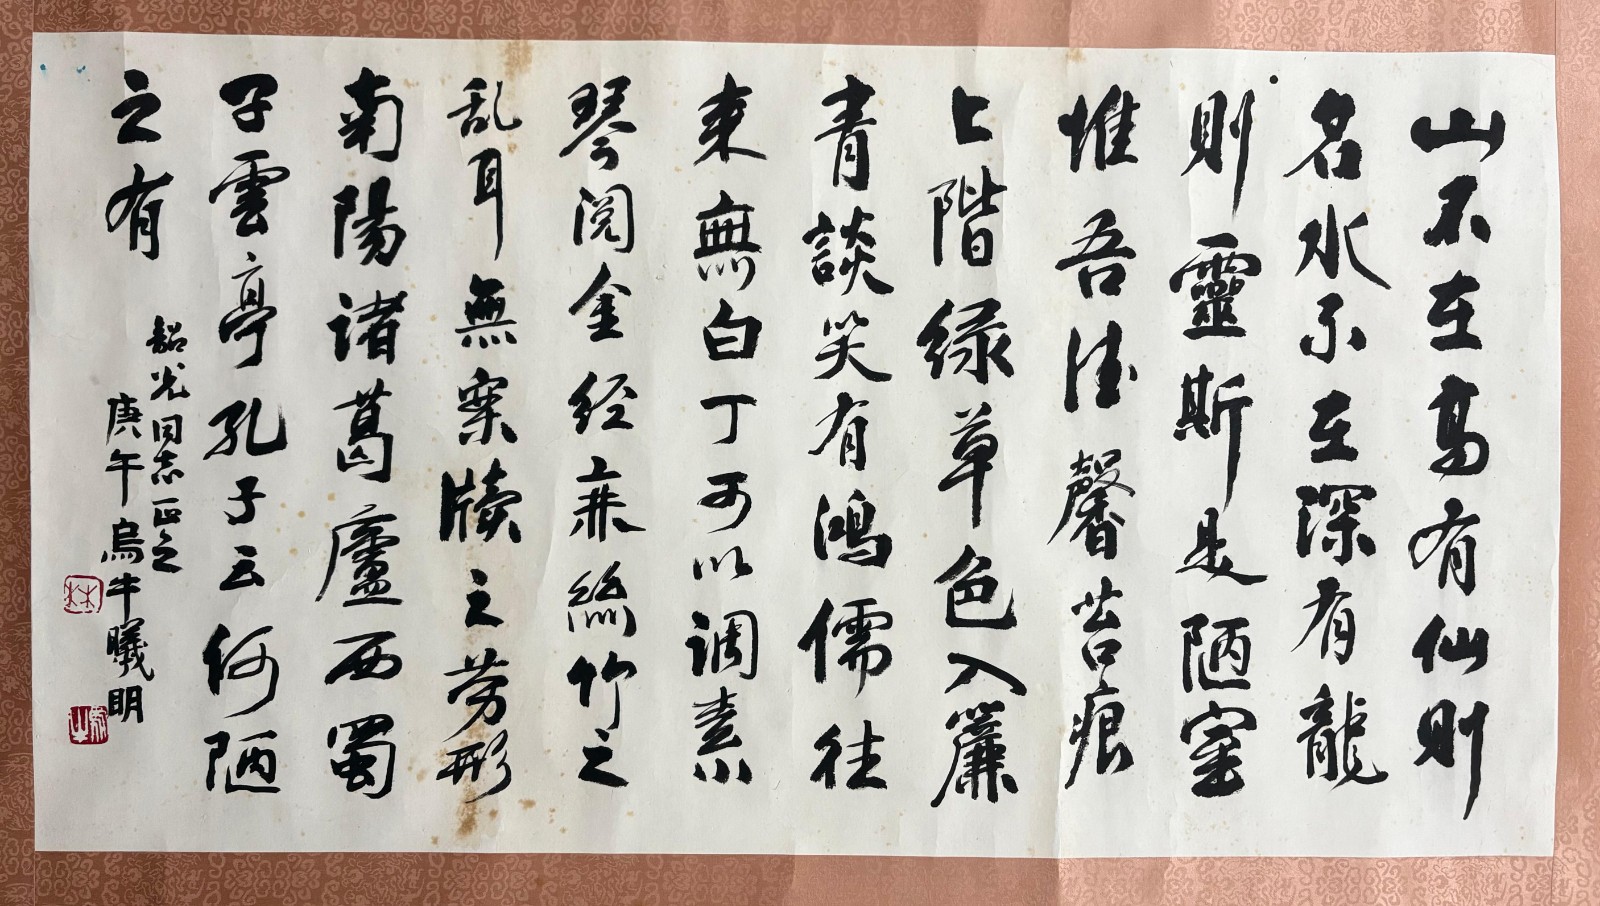 山不在高有仙則
名水不在深有龍
則靈斯是陋室
惟吾德馨苔痕
上階绿草色入簾
青談笑有鴻儒往
来無白丁可以调素
琴阅金经無絲竹之
乱耳無案牘之劳形
南陽诸葛廬西蜀
子雲亭孔子云何陋
之有
韶光同志正之
庚午烏牛曦明
林